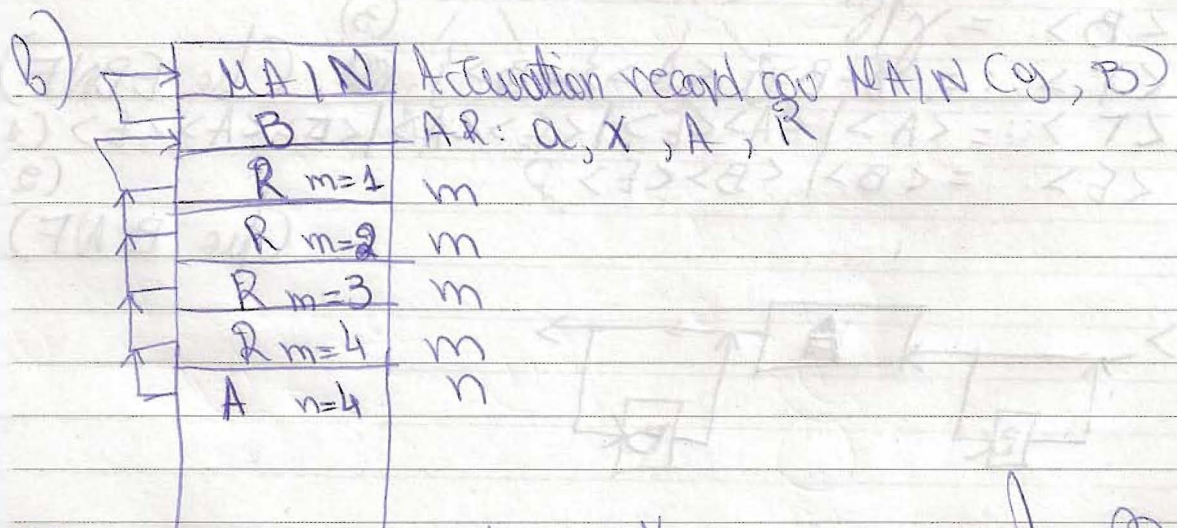 β)
MAIN Activation record του MAIN (y, B)
B AR: a, x, A, R
R m=1 m
R m=2 m
R m=3 m
R m=4 m
A n=4 n